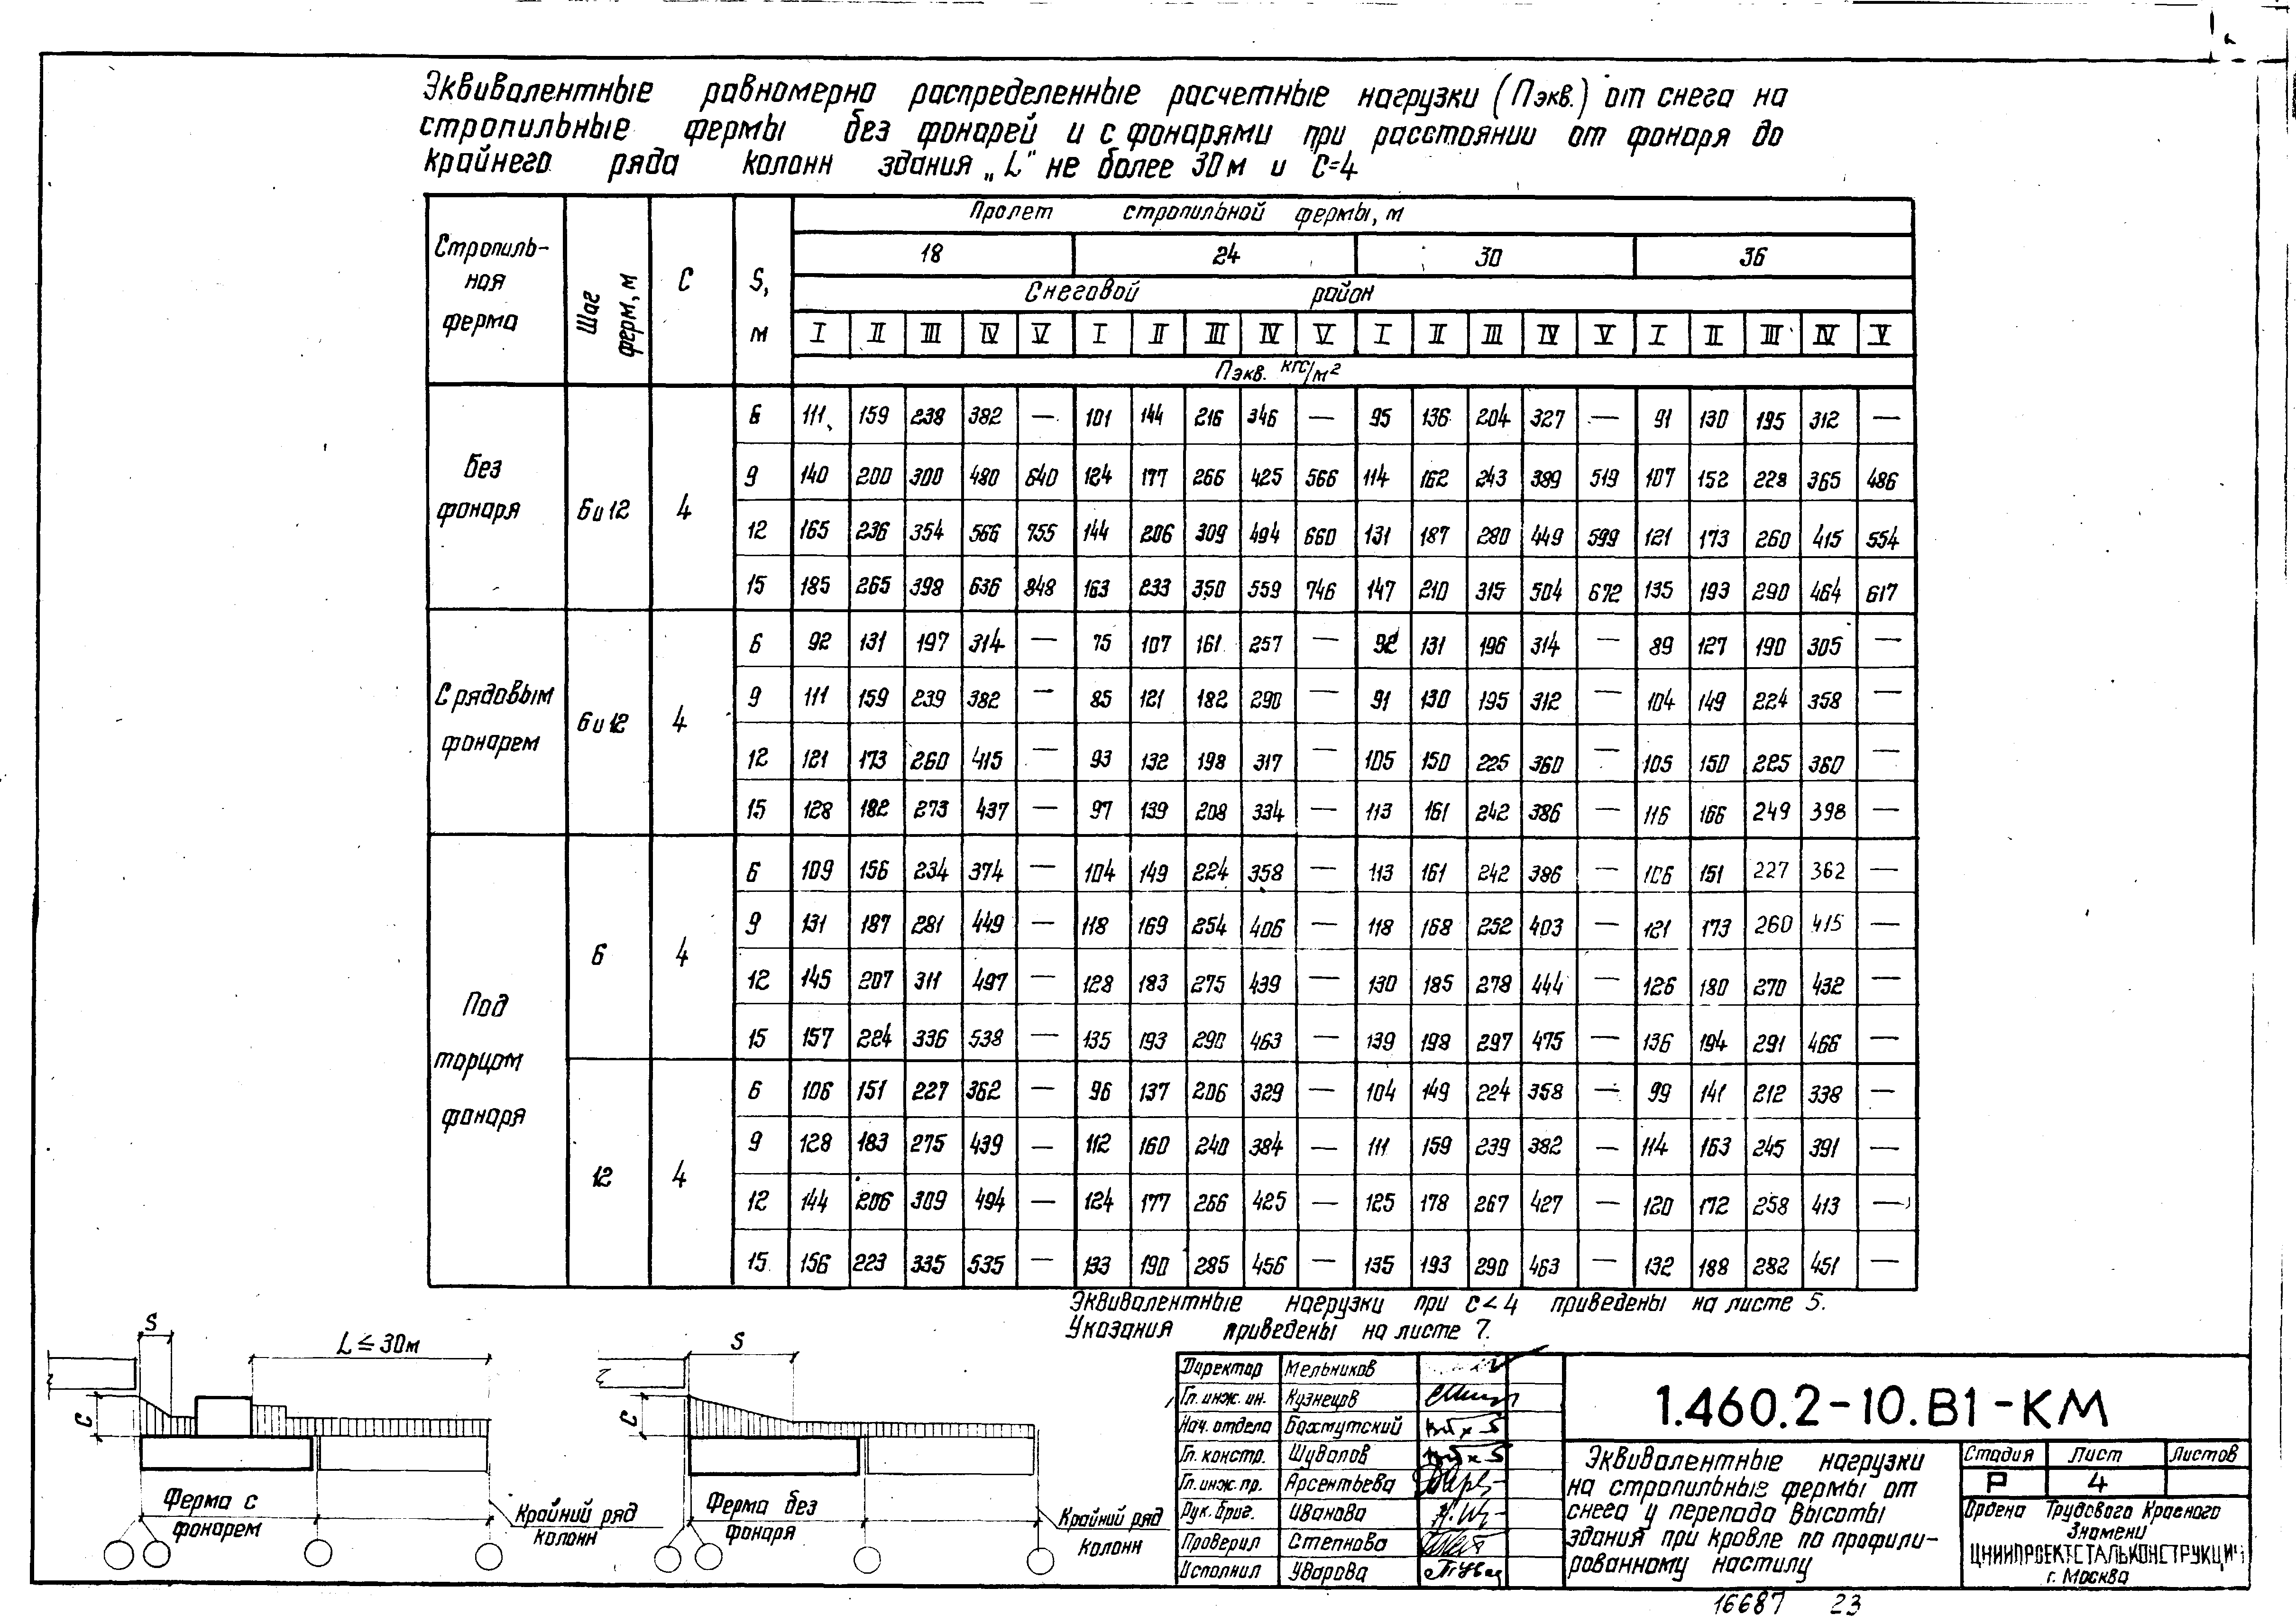 Эквивалентные равномерно распределенные расчетные нагрузки (Пэкв.) от снега на
стропильные фермы без фонарей и с фонарями при расстоянии от фонаря до
крайнего ряда колонн здания „L" не более 30м и С=4
Стропиль-
ная
ферма
Шаг
ферм, м
С
S,
м
Пролет стропильной фермы, м
18 24 30 36
Снеговой район
I II III IV V I II III IV V I II III IV V I II III IV V
Пэкв. кгс/м²
Без
фонаря
6 и 12
4
6 111 159 238 382 — 101 144 216 346 — 95 136 204 327 — 91 130 195 312 —
9 140 200 300 480 640 124 177 266 425 566 114 162 243 389 519 107 152 228 365 486
12 165 236 354 566 755 144 206 309 494 660 131 187 280 449 599 121 173 260 415 554
15 185 265 398 636 848 163 233 350 559 746 147 210 315 504 672 135 193 290 464 617
С рядовым
фонарем
6 и 12
4
6 92 131 197 314 — 75 107 161 257 — 92 131 196 314 — 89 127 190 305 —
9 111 159 239 382 — 85 121 182 290 — 91 130 195 312 — 104 149 224 358 —
12 121 173 260 415 — 93 132 198 317 — 105 150 225 360 — 105 150 225 360 —
15 128 182 273 437 — 97 139 208 334 — 113 161 242 386 — 116 166 249 398 —
Под
торцом
фонаря
6
4
6 109 156 234 374 — 104 149 224 358 — 113 161 242 386 — 106 151 227 362 —
9 131 187 281 449 — 118 169 254 406 — 118 168 252 403 — 121 173 260 415 —
12 145 207 311 497 — 128 183 275 439 — 130 185 278 444 — 126 180 270 432 —
15 157 224 336 538 — 135 193 290 463 — 139 198 297 475 — 136 194 291 466 —
12
4
6 106 151 227 362 — 96 137 206 329 — 104 149 224 358 — 99 141 212 338 —
9 128 183 275 439 — 112 160 240 384 — 111 159 239 382 — 114 163 245 391 —
12 144 206 309 494 — 124 177 266 425 — 125 178 267 427 — 120 172 258 413 —
15 156 223 335 535 — 133 190 285 456 — 135 193 290 463 — 132 188 282 451 —
Эквивалентные нагрузки при С<4 приведены на листе 5.
Указания приведены на листе 7.
S
L ≤ 30м
С
Ферма с
фонарем
Крайний ряд
колонн
S
С
Ферма без
фонаря
Крайний ряд
колонн
Директор Мельников
Гл. инж. ин. Кузнецов
Нач. отдела Бахмутский
Гл. констр. Шувалов
Гл. инж. пр. Арсентьева
Рук. бриг. Иванова
Проверил Степнова
Исполнил Уварова
1.460.2-10.В1-КМ
Эквивалентные нагрузки
на стропильные фермы от
снега у перепада высоты
здания при кровле по профили-
рованному настилу
Стадия Лист Листов
Р 4
Ордена Трудового Красного
Знамени
ЦНИИПРОЕКТСТАЛЬКОНСТРУКЦИЯ
г. Москва
16687 23